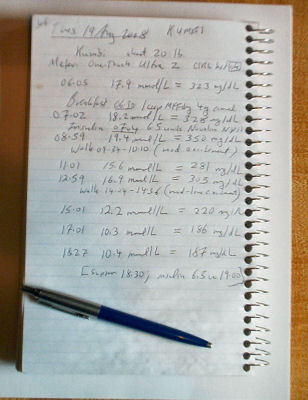 Tues 19 Aug 2008 KUMBI
Kumbi about 20 lb.
Meter: One-Touch Ultra 2
06:05 17.9 mmol/L = 323 mg/dL
Breakfast 06:30 1 cup
07:02 18.2 mmol/L = 328 mg/dL
Insulin 07:04 6.5 units Novolin
08:59 19.4 mmol/L = 350 mg/dL
Walk 09:34-10:10 (med. excitement)
11:01 15.6 mmol/L = 281 mg/dL
12:59 16.9 mmol/L = 305 mg/dL
Walk 14:04-14:36 (med-low excitement)
15:01 12.2 mmol/L = 220 mg/dL
17:01 10.3 mmol/L = 186 mg/dL
18:27 10.4 mmol/L = 187 mg/dL
[Supper 18:30; insulin 6.5 u 19:00]